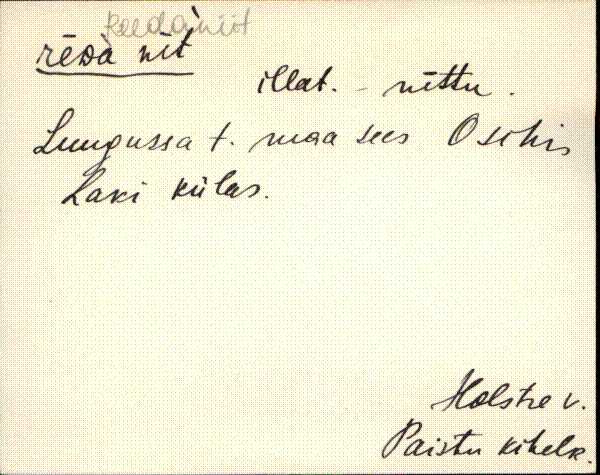 Reedaniit
rēdà nīt
illat. - nīttu.
Lungussa t. maa sees Oschis
Laki külas.
Holstre v.
Paistu kihelk.